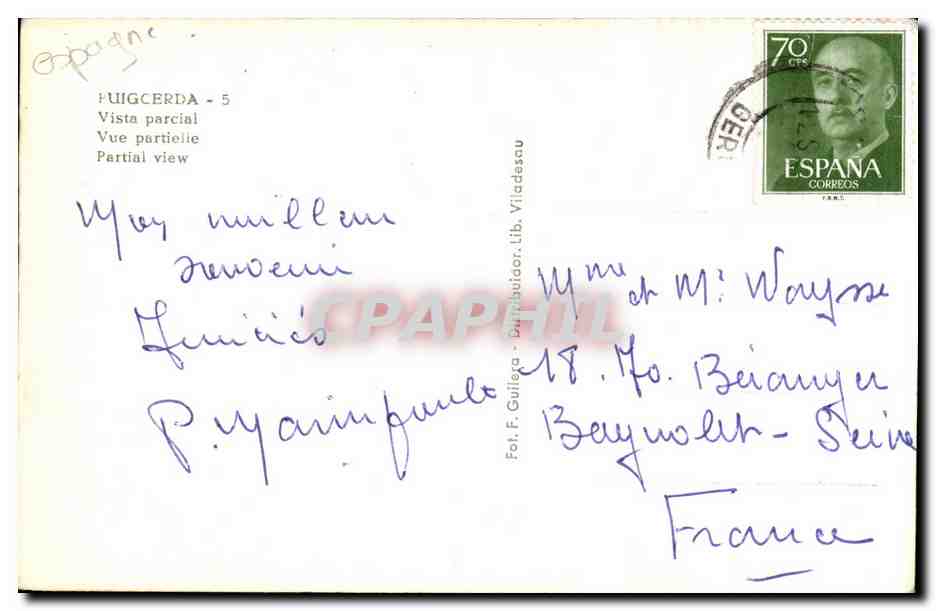 espagne
PUIGCERDA - 5
Vista parcial
Vue partielle
Partial view
souvenir
Amitiés
P.
Fot. F. Guilera - Distribuidor. Lib. Viladesau
CPAPHIL
70 CTS
ESPAÑA
CORREOS
F.N.M.T.
GER
Mme et Mr Waysse
18. Béranger
Bagnolet - Seine
France